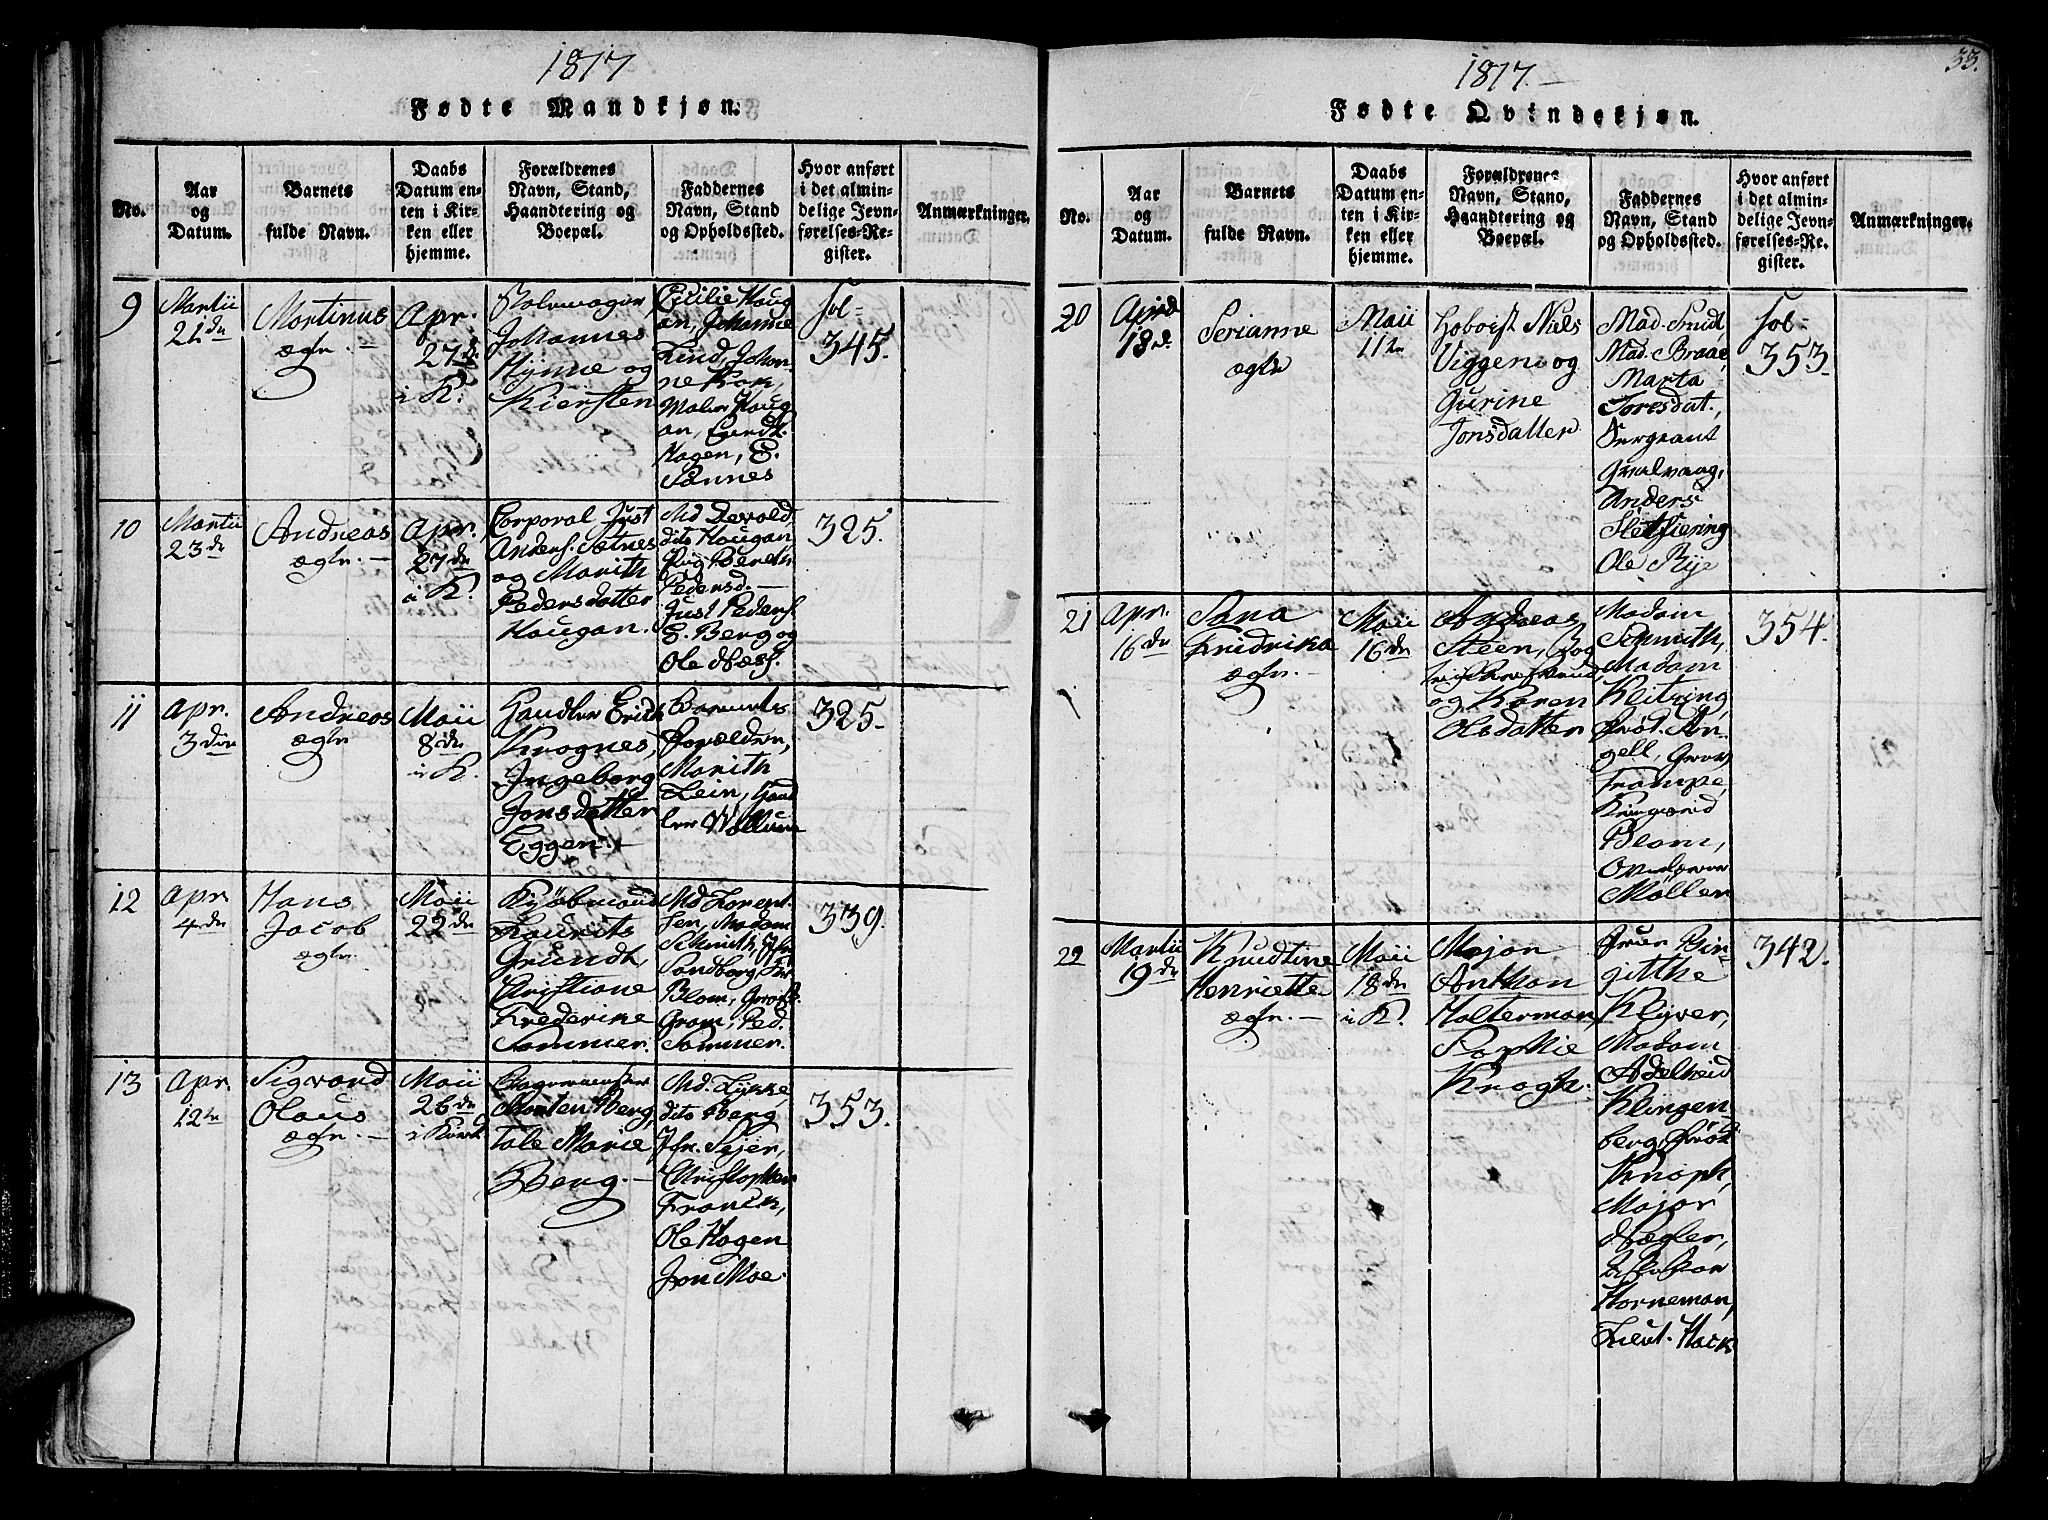 1817
Fødte Mandkjøn.
No.
Aar
og
Datum.
Barnets
fulde Navn.
Daabs
Datum en-
ten i Kir-
ken eller
hjemme.
Forældrenes
Navn, Stand,
Haandtering og
Boepæl.
Faddernes
Navn, Stand
og Opholdssted.
Hvor anført
i det almin-
delige Jevn-
førelses-Re-
gister.
Anmærkninger.
9
Martii
21de
Martinus
ægte.
Apr.
27de
i K.
Johannes
Hynne og
Kiersten
Cecilie Houg
an, Johanne
Lind, Johan
ne
Maler Houg
an,
Hagen, E.
Sannes
fol-
345.
10
Martii
23de
Andreas
ægte.
Apr.
27de
i K.
Corporal Just
Anders. Sætnes
og Marith
Pedersdatter
Hougan.
Md Devold,
dito Hougan
Pig Bereth
Pedersd.
Just Peders.
E. Berg og
Ole Næss.
325.
11
Apr.
3die
Andreas
ægte
Maii
8de
i K.
Handler Erich
Krognes,
Ingeborg
Jonsdatter
Eggen.
Barnets
Forældre,
Marith
Lein, Hand
ler Wollum
325.
12
Apr
4de
Hans
Jacob
ægte.
Maii
22de
Kjøbmand
Laurits
Grundt,
Christiane
Frederike
Sommer.
Md Lorent
sen, Madam
Schmith, Jfr.
Sandborg
Blom,
Gram, Ped.
Sommer.
339.
13
Apr.
12te
Sigvard
Olaus
ægte.
Maii
26de
i Kirk
Morten Berg,
Tale Marie
Berg.
Md. Lykke
dito Berg
Jfr. Sejer,
Christopher
Franck,
Ole Hagen
Jon Moe.
353.
1817.
33.
Fødte Qvindekjøn.
No.
Aar
og
Datum.
Barnets
fulde Navn.
Daabs
Datum en-
ten i Kir-
ken eller
hjemme.
Forældrenes
Navn, Stand,
Haandtering og
Boepæl.
Faddernes
Navn, Stand
og Opholdssted.
Hvor anført
i det almin-
delige Jevn-
førelses-Re-
gister.
Anmærkninger.
20
April
13d.
Serianne
ægte
Maii
11te
Hoboist Niels
Viggen og
Gurine
Jonsdatter
Mad. Smidt,
Mad. Braae,
Marta
Toresdat.,
Sergeant
Qvalvaag,
Anders
Sletfiering
Ole Rye
fol-
353.
21
Apr.
16de
Sana
Fridrika
ægte.
Maii
16de
Andreas
Steen,
og Karen
Olsdatter
Madam
Schmith,
Madam
Klitring,
Frøk. An-
gell, Grev
Trampe,
Blom,
Møller
354.
22
Martii
19de
Knudtine
Henriette
ægte.
Maii
18de
i K.
Major
Anthon
Halterman,
Sophie
Krogh.
Frue Bir-
gitthe
Klyver,
Madam
Adelheid
Klingen
berg, Frøk
Knoph,
Major
Nægler,
Horneman,
Lieut. Hack
342.